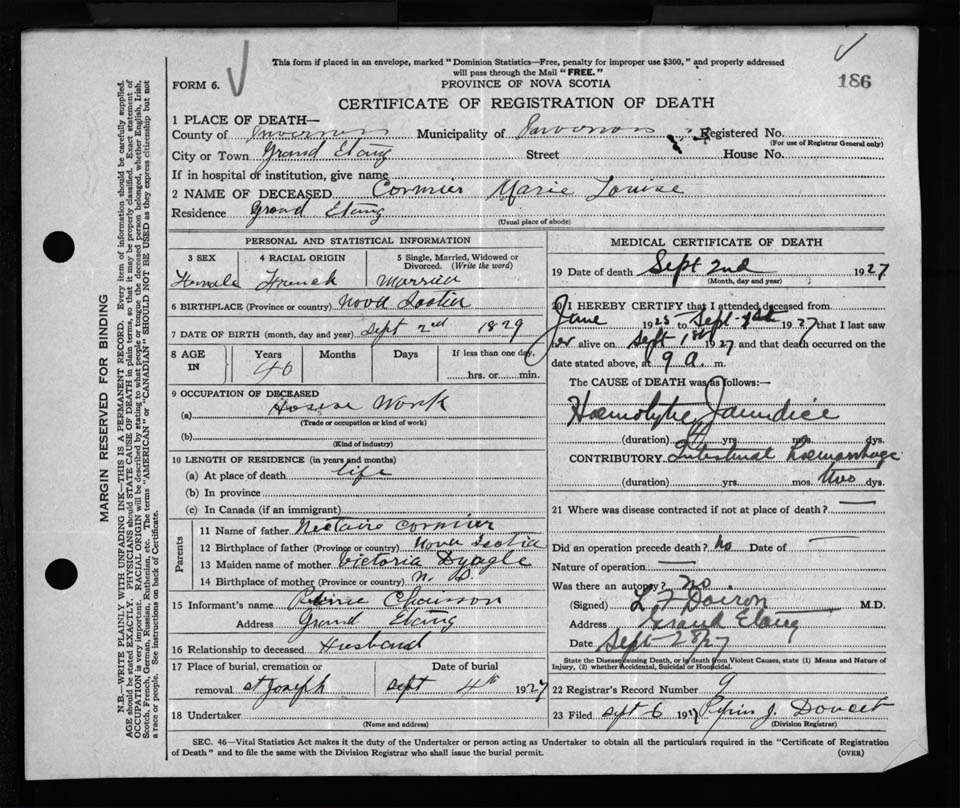 This form if placed in an envelope, marked "Dominion Statistics—Free, penalty for improper use $300," and properly addressed
will pass through the Mail "FREE."
186
FORM 6.
PROVINCE OF NOVA SCOTIA
CERTIFICATE OF REGISTRATION OF DEATH
1 PLACE OF DEATH—
County of Inverness Municipality of Inverness Registered No.
(For use of Registrar General only)
City or Town Grand Etang Street House No.
If in hospital or institution, give name
2 NAME OF DECEASED Cormier Marie Louise
Residence Grand Etang
(Usual place of abode)
PERSONAL AND STATISTICAL INFORMATION
3 SEX 4 RACIAL ORIGIN 5 Single, Married, Widowed or
Divorced. (Write the word)
Female French Married
6 BIRTHPLACE (Province or country) Nova Scotia
7 DATE OF BIRTH (month, day and year) Sept 2nd 1829
8 AGE IN Years Months Days If less than one day,
40 hrs. or min.
9 OCCUPATION OF DECEASED
(a) House Work
(Trade or occupation or kind of work)
(b)
(Kind of industry)
10 LENGTH OF RESIDENCE (in years and months)
(a) At place of death life
(b) In province
(c) In Canada (if an immigrant)
Parents
11 Name of father Nectaire Cormier
12 Birthplace of father (Province or country) Nova Scotia
13 Maiden name of mother Victoria
14 Birthplace of mother (Province or country) N.
15 Informant's name Chiasson
Address Grand Etang
16 Relationship to deceased Husband
17 Place of burial, cremation or Date of burial
removal St Joseph Sept 4th 1927
18 Undertaker
(Name and address)
MEDICAL CERTIFICATE OF DEATH
19 Date of death Sept 2nd 1927
(Month, day and year)
I HEREBY CERTIFY that I attended deceased from
June 1925 to Sept 1st 1927 that I last saw
her alive on Sept 1st 1927 and that death occurred on the
date stated above, at 9 a. m.
The CAUSE of DEATH was as follows:—
Haemolytic Jaundice
(duration) yrs. mos. dys.
CONTRIBUTORY Intestinal haemorrhage
(duration) yrs. mos. two dys.
21 Where was disease contracted if not at place of death? —
Did an operation precede death? no Date of —
Nature of operation —
Was there an autopsy? no
(Signed) L J Doiron M.D.
Address Grand Etang
Date Sept 28/27
State the Disease causing Death, or is death from Violent Causes, state (1) Means and Nature of
Injury, (2) whether Accidental, Suicidal or Homicidal.
22 Registrar's Record Number 9
23 Filed Sept 6 19 J. Doucet
(Division Registrar)
SEC. 46—Vital Statistics Act makes it the duty of the Undertaker or person acting as Undertaker to obtain all the particulars required in the "Certificate of Registration
of Death" and to file the same with the Division Registrar who shall issue the burial permit. (OVER)
MARGIN RESERVED FOR BINDING
N.B.—WRITE PLAINLY WITH UNFADING INK—THIS IS A PERMANENT RECORD. Every item of information should be carefully supplied.
AGE should be stated EXACTLY. PHYSICIANS should STATE CAUSE OF DEATH in plain terms, so that it may be properly classified. Exact statement of
OCCUPATION is very important. RACIAL ORIGIN will be described by stating to what people or tongue the deceased person belonged, whether English, Irish,
Scotch, French, German, Russian, Ruthenian, etc. The terms "AMERICAN" or "CANADIAN" SHOULD NOT BE USED as they express citizenship but not
a race or people. See instructions on back of Certificate.